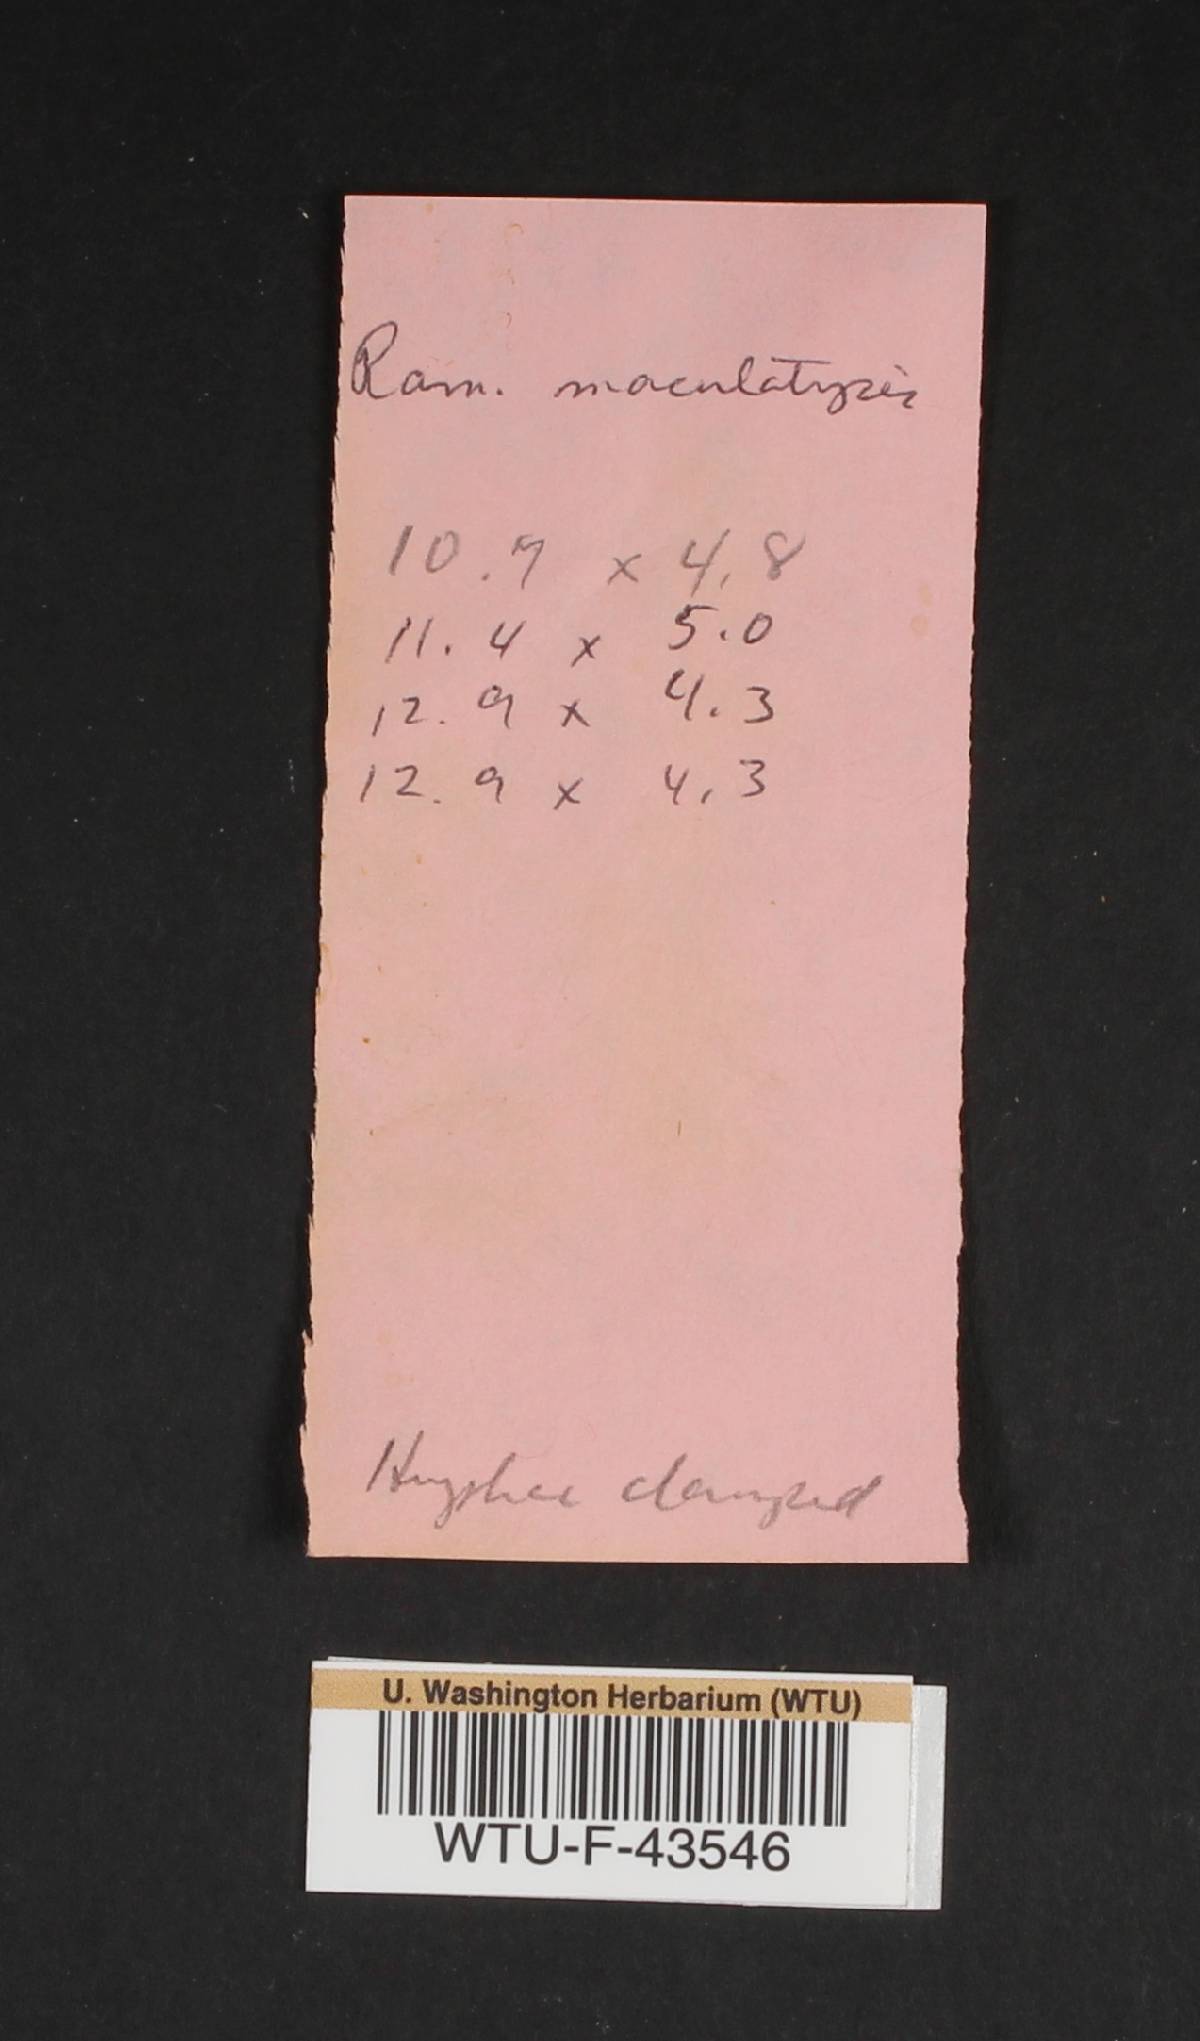 Ram. maculatipes
10.7 x 4.8
11.4 x 5.0
12.9 x 4.3
12.9 x 4.3
Hyphae clamped
U. Washington Herbarium (WTU)
WTU-F-43546